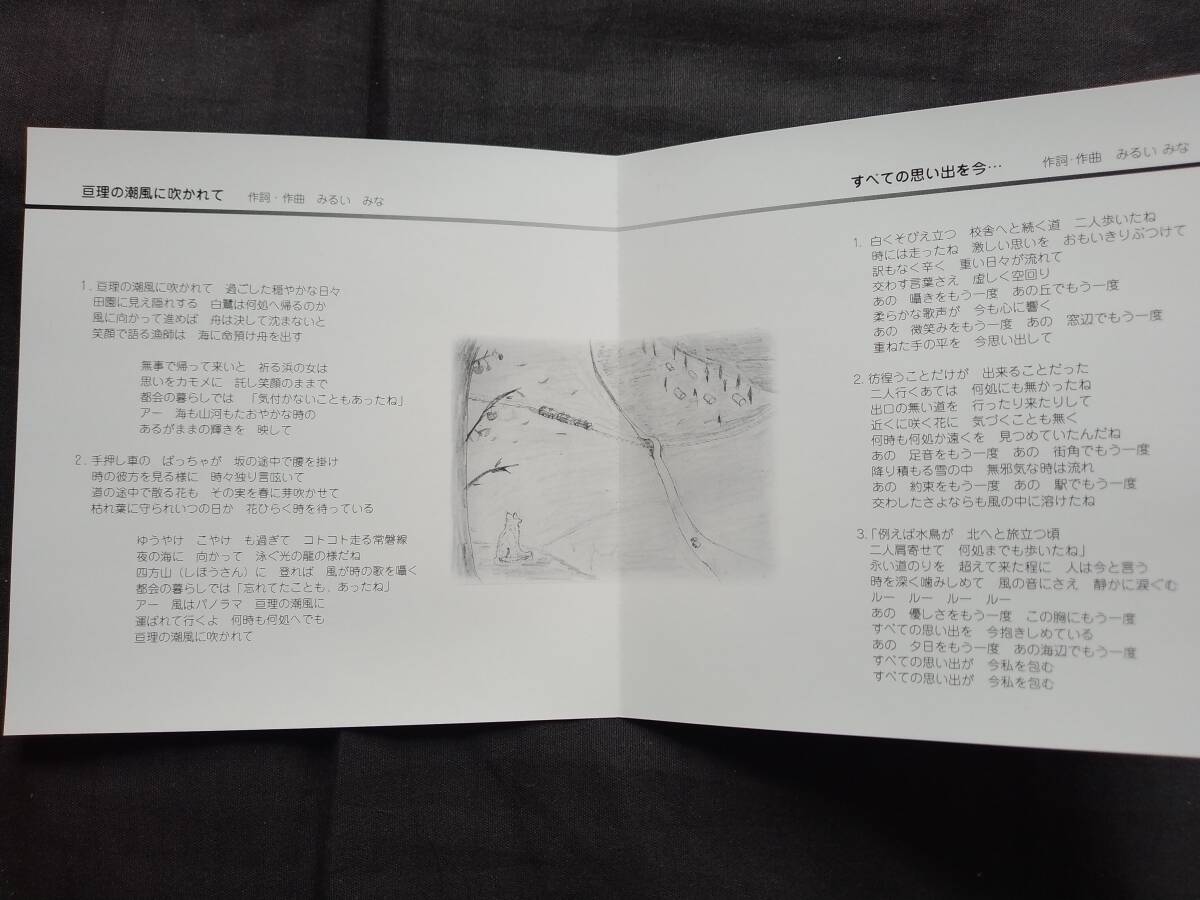 亘理の潮風に吹かれて　作詞・作曲　みるい　みな
1. 亘理の潮風に吹かれて　過ごした穏やかな日々
田園に見え隠れする　白鷺は何処へ帰るのか
風に向かって進めば　舟は決して沈まないと
笑顔で語る漁師は　海に命預け舟を出す
無事で帰って来いと　祈る浜の女は
思いをカモメに　託し笑顔のままで
都会の暮らしでは　「気付かないこともあったね」
アー　海も山河もたおやかな時の
あるがままの輝きを　映して
2. 手押し車の　ばっちゃが　坂の途中で腰を掛け
時の彼方を見る様に　時々独り言呟いて
道の途中で散る花も　その実を春に芽吹かせて
枯れ葉に守られいつの日か　花ひらく時を待っている
ゆうやけ　こやけ　も過ぎて　コトコト走る常磐線
夜の海に　向かって　泳ぐ光の龍の様だね
四方山（しほうさん）に　登れば　風が時の歌を囁く
都会の暮らしでは「忘れてたことも、あったね」
アー　風はパノラマ　亘理の潮風に
運ばれて行くよ　何時も何処へでも
亘理の潮風に吹かれて
すべての思い出を今…　作詞・作曲　みるい みな
1. 白くそびえ立つ　校舎へと続く道　二人歩いたね
時には走ったね　激しい思いを　おもいきりぶつけて
訳もなく辛く　重い日々が流れて
交わす言葉さえ　虚しく空回り
あの　囁きをもう一度　あの丘でもう一度
柔らかな歌声が　今も心に響く
あの　微笑みをもう一度　あの　窓辺でもう一度
重ねた手の平を　今思い出して
2. 彷徨うことだけが　出来ることだった
二人行くあては　何処にも無かったね
出口の無い道を　行ったり来たりして
近くに咲く花に　気づくことも無く
何時も何処か遠くを　見つめていたんだね
あの　足音をもう一度　あの　街角でもう一度
降り積もる雪の中　無邪気な時は流れ
あの　約束をもう一度　あの　駅でもう一度
交わしたさよならも風の中に溶けたね
3.「例えば水鳥が　北へと旅立つ頃
二人肩寄せて　何処までも歩いたね」
永い道のりを　超えて来た程に　人は今と言う
時を深く噛みしめて　風の音にさえ　静かに涙ぐむ
ルー　ルー　ルー　ルー
あの　優しさをもう一度　この胸にもう一度
すべての思い出を　今抱きしめている
あの　夕日をもう一度　あの海辺でもう一度
すべての思い出が　今私を包む
すべての思い出が　今私を包む